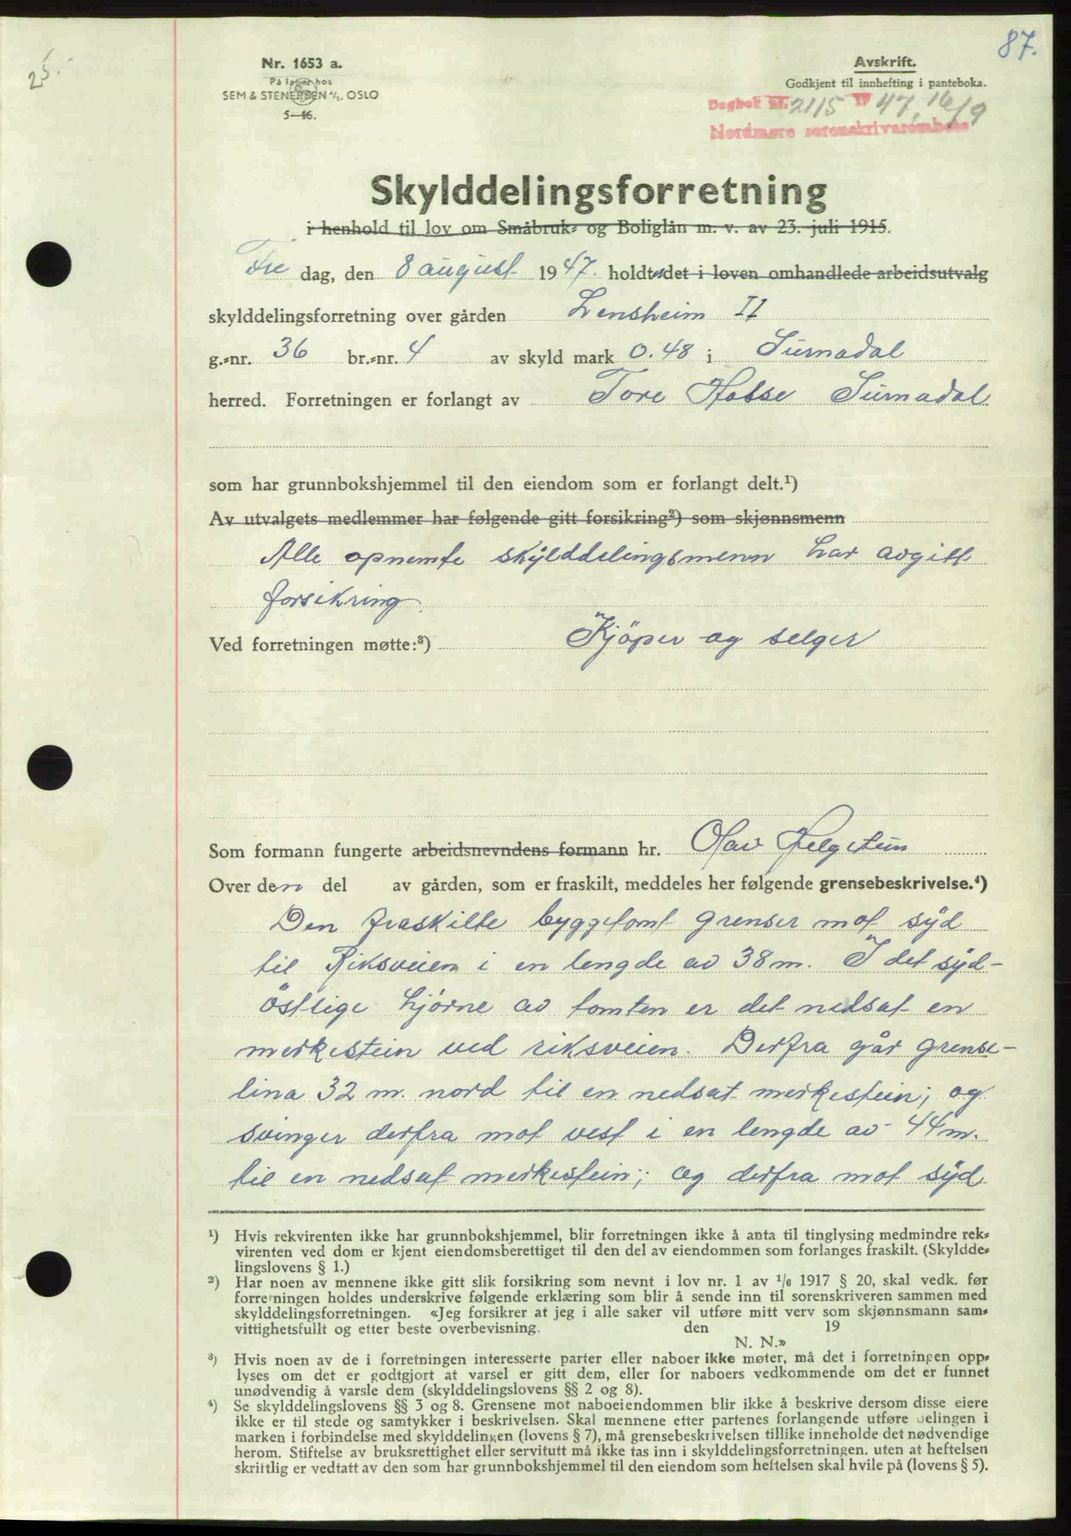 87.
25.-
Nr. 1653 a.
På lager hos
SEM & STENERSEN A/S, OSLO
5—46.
Avskrift.
Godkjent til innhefting i panteboka.
Dagbok nr. 2115 19 47, 16/9
Nordmøre sorenskriverembete
Skylddelingsforretning
i henhold til lov om Småbruk- og Boliglån m. v. av 23. juli 1915.
Fre dag, den 8 august 1947. holdt det i loven omhandlede arbeidsutvalg
skylddelingsforretning over gården Lensheim II
g.-nr. 36 br.-nr. 4 av skyld mark 0.48 i Surnadal
herred. Forretningen er forlangt av Tore Halse Surnadal
som har grunnbokshjemmel til den eiendom som er forlangt delt.¹)
Av utvalgets medlemmer har følgende gitt forsikring²) som skjønnsmenn
Alle opnemte skylddelingsmenn har avgitt
forsikring.
Ved forretningen møtte:³) Kjöper og selger
Som formann fungerte arbeidsnevndens formann hr. Olav Helgetun
Over den del av gården, som er fraskilt, meddeles her følgende grensebeskrivelse.⁴)
Den fraskilte byggetomt grenser mot syd
til Riksveien i en lengde av 38 m. I det syd-
östlige hjørne av tomten er det nedsat en
merkestein ved riksveien. Derfra går grense-
lina 32 m. nord til en nedsat merkestein; og
svinger derfra mot vest i en lengde av 44 m.
til en nedsat merkestein; og derfra mot syd
¹) Hvis rekvirenten ikke har grunnbokshjemmel, blir forretningen ikke å anta til tinglysing medmindre rek-
virenten ved dom er kjent eiendomsberettiget til den del av eiendommen som forlanges fraskilt. (Skyldde-
lingslovens § 1.)
²) Har noen av mennene ikke gitt slik forsikring som nevnt i lov nr. 1 av 1/6 1917 § 20, skal vedk. før
forretningen holdes underskrive følgende erklæring som blir å sende inn til sorenskriveren sammen med
skylddelingsforretningen. «Jeg forsikrer at jeg i alle saker vil utføre mitt verv som skjønnsmann sam-
vittighetsfullt og etter beste overbevisning. den 19
N. N.»
³) Hvis noen av de i forretningen interesserte parter eller naboer ikke møter, må det i forretningen opp-
lyses om det er godtgjort at varsel er gitt dem, eller for naboers vedkommende om det er funnet
unødvendig å varsle dem (skylddelingslovens §§ 2 og 8).
⁴) Se skylddelingslovens §§ 3 og 8. Grensene mot naboeiendommen blir ikke å beskrive dersom disse eiere
ikke er til stede og samtykker i beskrivelsen. Skal mennene etter partenes forlangende utføre delingen i
marken i forbindelse med skylddelingen (lovens § 7), må grensebeskrivelsen tillike inneholde det nødvendige
herom. Stiftelse av bruksrettighet eller servitutt må ikke tas inn i skylddelingsforretningen, uten at heftelsen
skriftlig er vedtatt av den som har grunnbokshjemmel til den eiendom som heftelsen skal hvile på (lovens § 5).